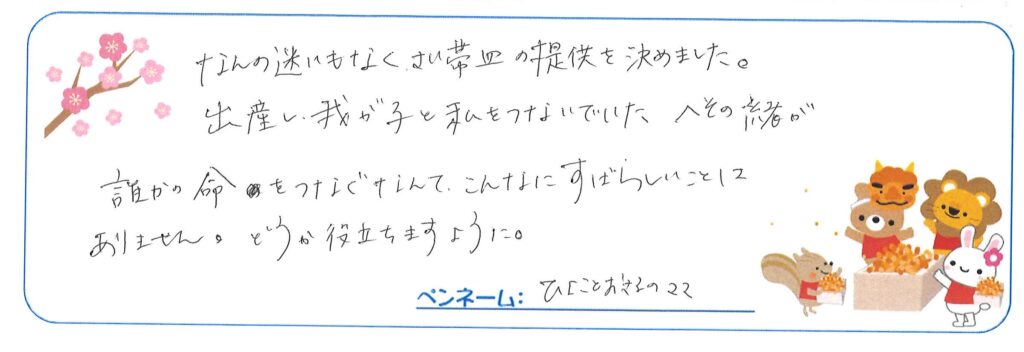 なんの迷いもなく、さい帯血の提供を決めました。
出産し、我が子と私をつないでいた へその緒が
誰かの命をつなぐなんて、こんなにすばらしいことは
ありません。どうか役立ちますように。
ペンネーム: ひよことおさるのママ